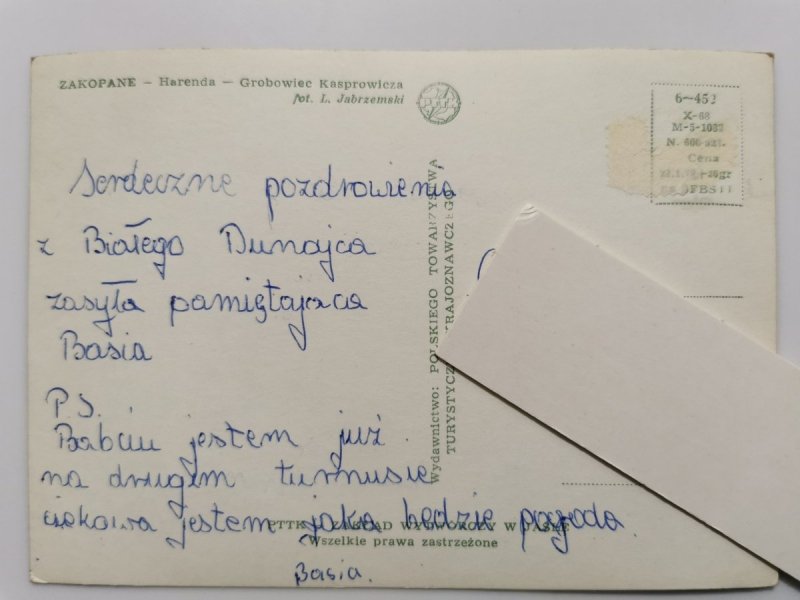 ZAKOPANE — Harenda — Grobowiec Kasprowicza
fot. L. Jabrzemski
PTTK
6—452
X-68
M-5-1083
N. 600 szt.
Cena
Serdeczne pozdrowienia
z Białego Dunajca
zasyła pamiętająca
Basia
P.S.
Babciu jestem już
na drugim turnusie
ciekawa jestem jaka będzie pogoda.
Basia.
Wydawnictwo: POLSKIEGO TOWARZYSTWA
TURYSTYCZ KRAJOZNAWCZEGO
PTTK ZAKŁAD WYTWÓRCZY W
Wszelkie prawa zastrzeżone